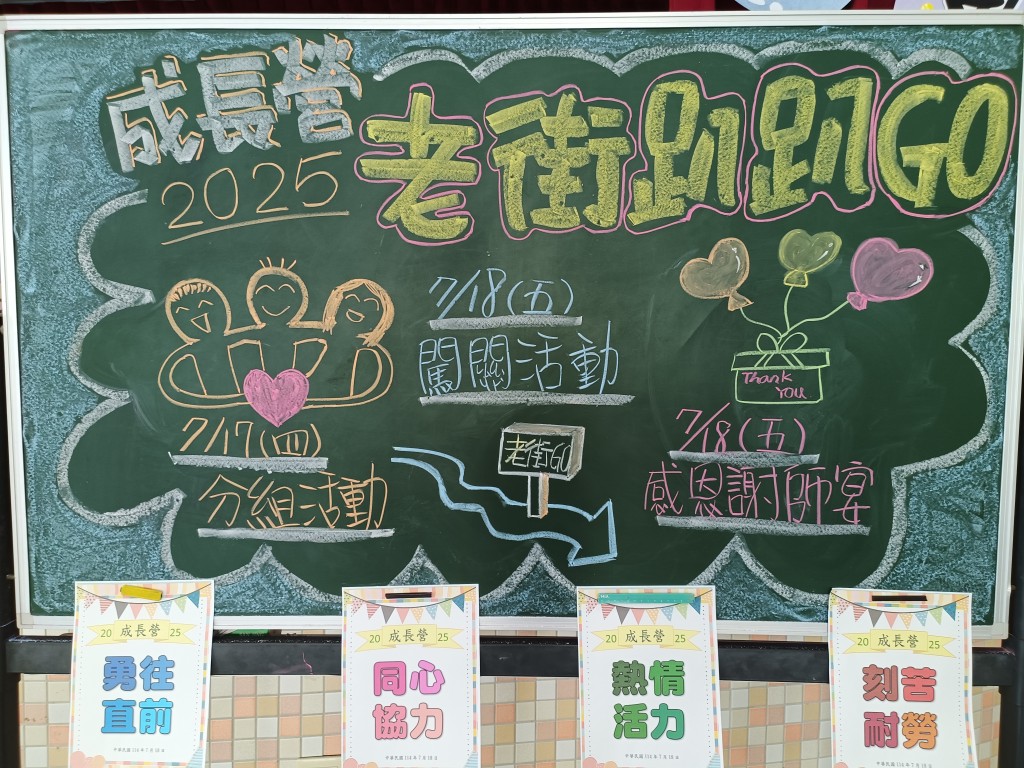 成長營
2025
老街趴趴GO
7/17(四)
分組活動
7/18(五)
闖關活動
老街GO
Thank
YOU
7/18(五)
感恩謝師宴
20 成長營 25
勇往
直前
中華民國 114 年 7 月 18 日
20 成長營 25
同心
協力
中華民國 114 年 7 月 18 日
20 成長營 25
熱情
活力
中華民國 114 年 7 月 18 日
20 成長營 25
刻苦
耐勞
中華民國 114 年 7 月 18 日